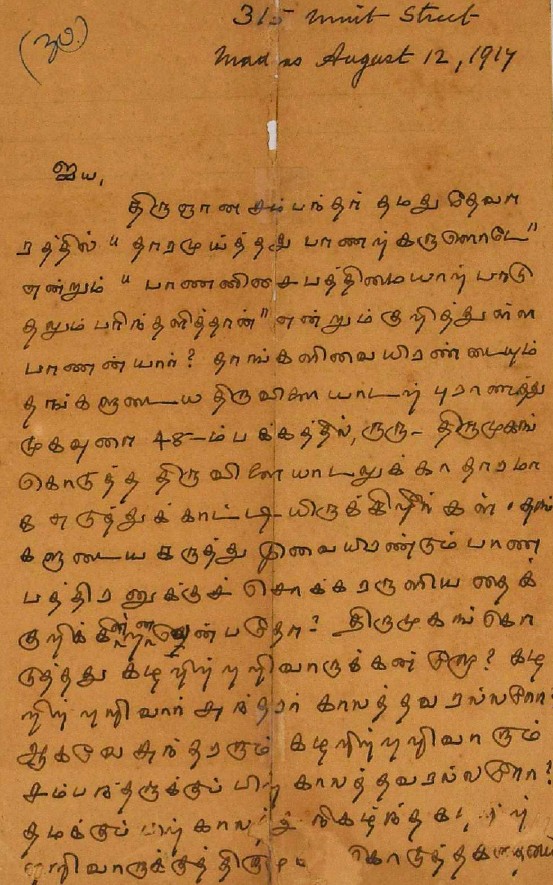 (௩௦)
315 Mint Street
Madras August 12, 1917
ஐய,
திருஞானசம்பந்தர் தமது தேவா
ரத்தில் "தாரமுய்த்தது பாணற்கருளொடே"
என்றும் "பாணனிசை பத்திமையாற் பாடு
தலும் பரிந்தளித்தான்" என்றும் குறித்துள்ள
பாணன் யார்? தாங்களிவை யிரண்டையும்
தங்களுடைய திருவிளையாடற் புராணத்து
முகவுரை 48-ம் பக்கத்தில், ருரு- திருமுகங்
கொடுத்த திருவிளையாடலுக்காதாரமா
க எடுத்துக் காட்டியிருக்கிறீர்கள். தங்
களுடைய கருத்து இவையிரண்டும் பாண
பத்திரனுக்குச் சொக்கரருளியதைக்
குறிக்கின்றன வென்பதோ? திருமுகங் கொ
டுத்தது கழறிற்றறிவாருக்கன்றோ? கழ
றிற்றறிவார் சுந்தரர் காலத்தவரல்லரோ?
ஆகவே சுந்தரரும் கழறிற்றறிவாரும்
சம்பந்தருக்குப் பிற் காலத்தவரல்லரோ?
தமக்குப் பிற்காலத் நிகழ்ந்த
றறிவாருக்குத் கொடுத்த கதையை